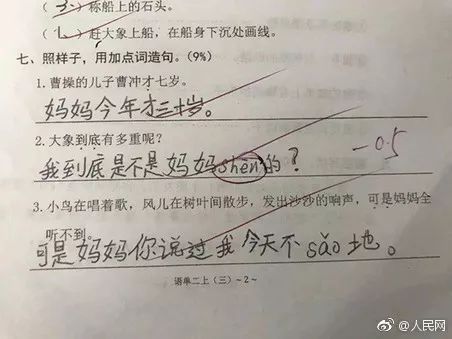 (3)称船上的石头。
(1)赶大象上船，在船身下沉处画线。
七、照样子，用加点词造句。(9%)
1.曹操的儿子曹冲才七岁。
妈妈今年才三十岁。
2.大象到底有多重呢？
我到底是不是妈妈shēn的？
-0.5
3.小鸟在唱着歌，风儿在树叶间散步，发出沙沙的响声，可是妈妈全
听不到。
可是妈妈你说过我今天不sǎo地。
语单二上（三）－2－
@人民网